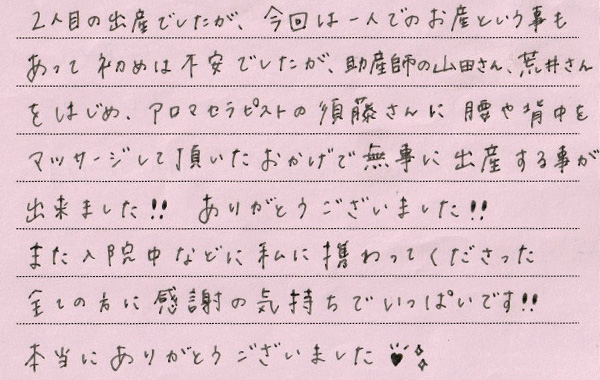 2人目の出産でしたが、今回は一人でのお産という事も
あって初めは不安でしたが、助産師の山田さん、荒井さん
をはじめ、アロマセラピストの須藤さんに腰や背中を
マッサージして頂いたおかげで無事に出産する事が
出来ました!! ありがとうございました!!
また入院中などに私に携わってくださった
全ての方に感謝の気持ちでいっぱいです!!
本当にありがとうございました